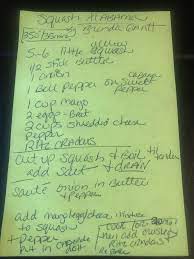 Squash Alabama
By Brenda Gantt
350 / 35 mins
yellow
5-6 little squash
1/2 stick butter
1 onion
1 Bell Pepper or Sweet Pepper
1 cup mayo
2 eggs - Beat
2 cups shredded cheese
Pepper
Ritz crackers
Cut up squash & Boil til tender
add salt & DRAIN
Sauté onion in butter
+ Pepper
add mayo/eggs/cheese mixture
to squash
+ Pepper
put in dish
then add
Ritz